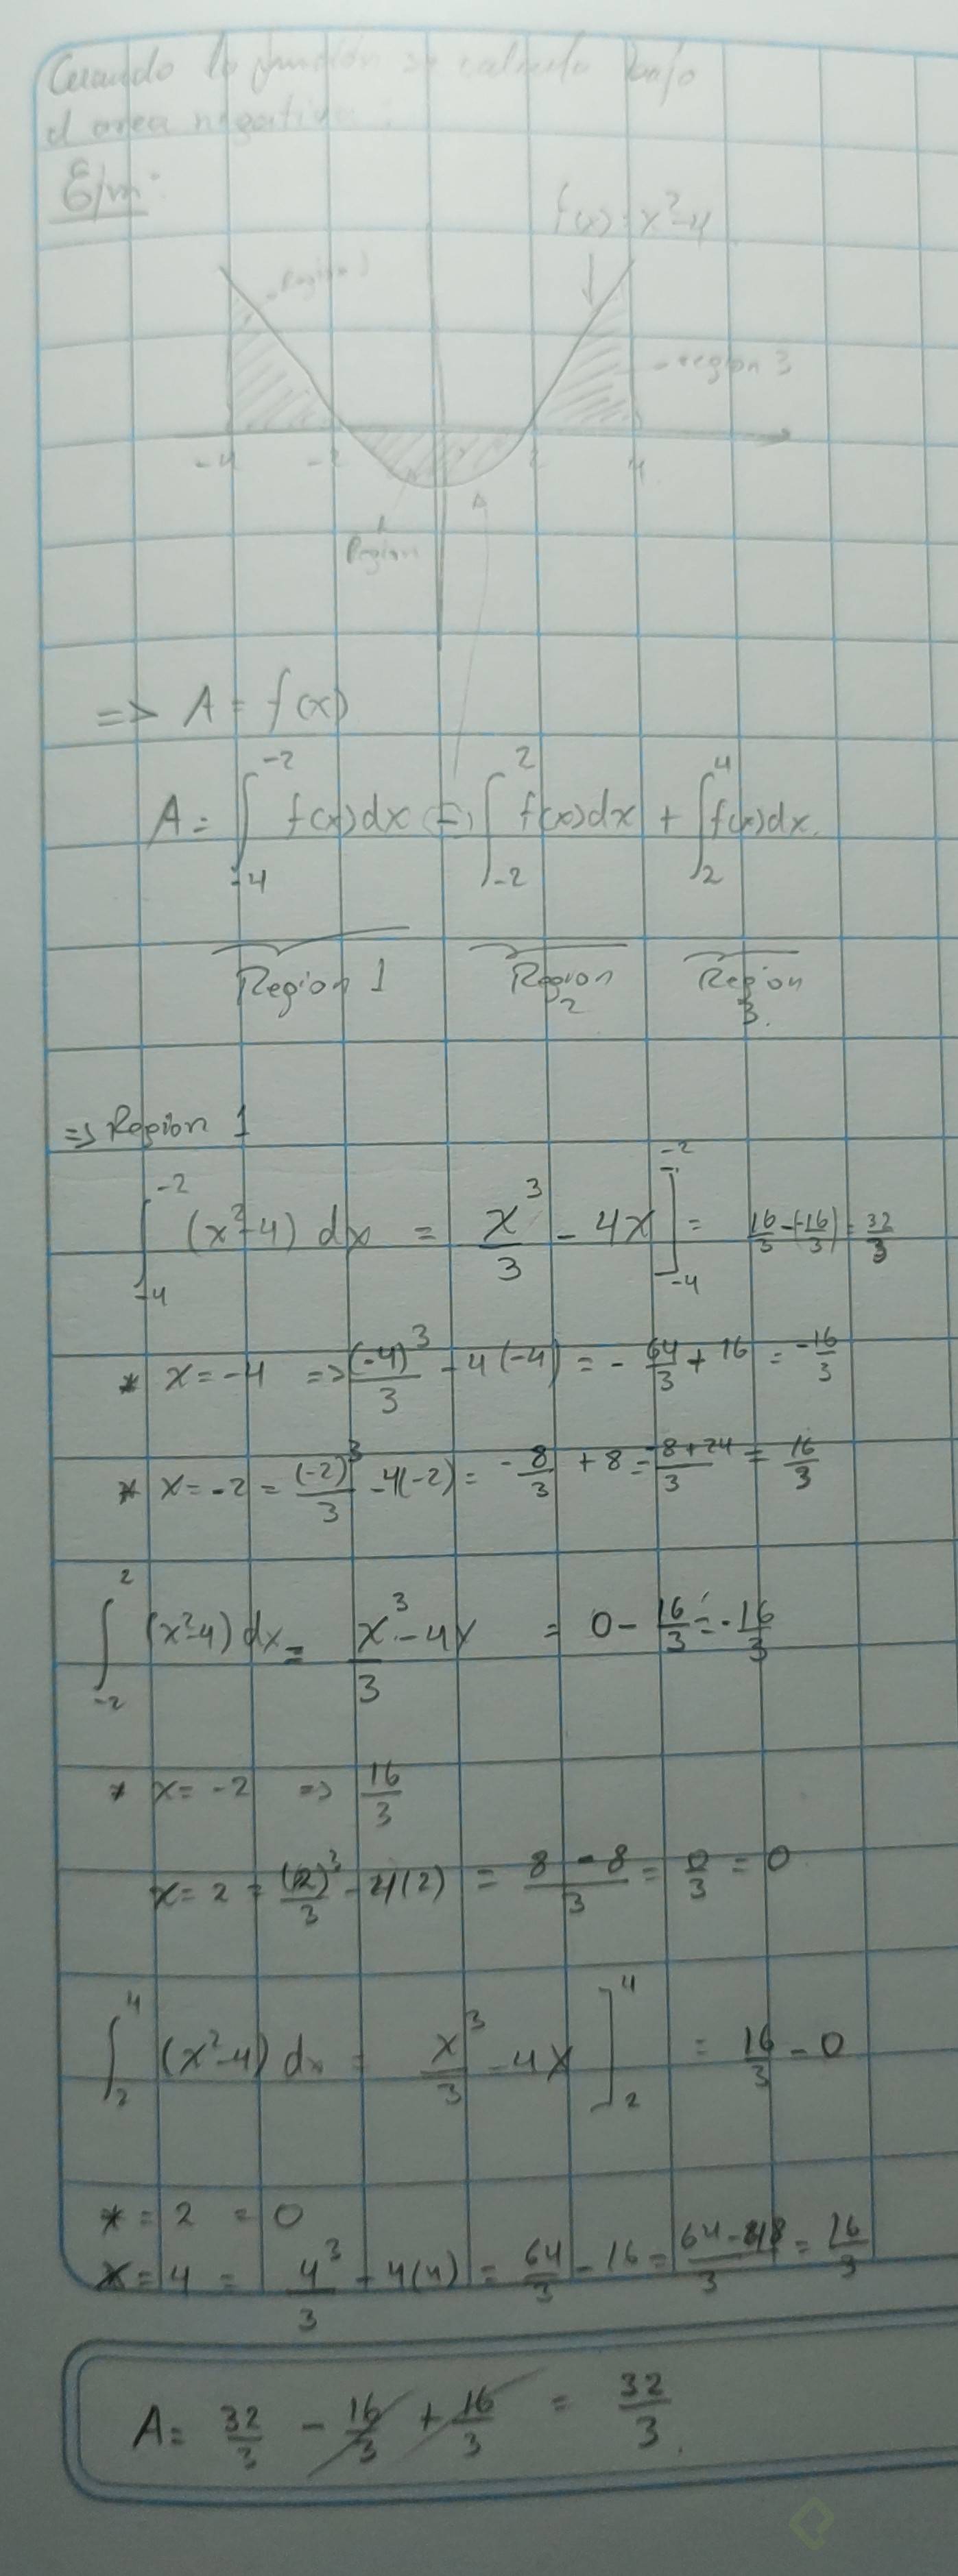 Cuando la función se calcula bajo
el area negativa:
E/m:
f(x) = x²-4
Region 1
region 3
-4 -2 2 4
Region
=> A = f(x)
A = ∫_{-4}^{-2} f(x)dx (-) ∫_{-2}^{2} f(x)dx + ∫_{2}^{4} f(x)dx.
Region 1 Region 2 Region 3.
=> Region 1
∫_{-4}^{-2} (x²-4) dx = x³/3 - 4x ]_{-4}^{-2} = 16/3 - (-16/3) = 32/3
* x = -4 => (-4)³/3 - 4(-4) = - 64/3 + 16 = -16/3
* x = -2 = (-2)³/3 - 4(-2) = - 8/3 + 8 = -8+24/3 = 16/3
∫_{-2}^{2} (x²-4) dx = x³/3 - 4x = 0 - 16/3 = -16/3
* x = -2 => 16/3
x = 2 = (2)³/3 - 4(2) = 8 - 8/3 = 0/3 = 0
∫_{2}^{4} (x²-4) dx = x³/3 - 4x ]_{2}^{4} = 16/3 - 0
* = 2 = 0
x = 4 = 4³/3 - 4(4) = 64/3 - 16 = 64-48/3 = 16/3
A = 32/3 - 16/3 + 16/3 = 32/3.